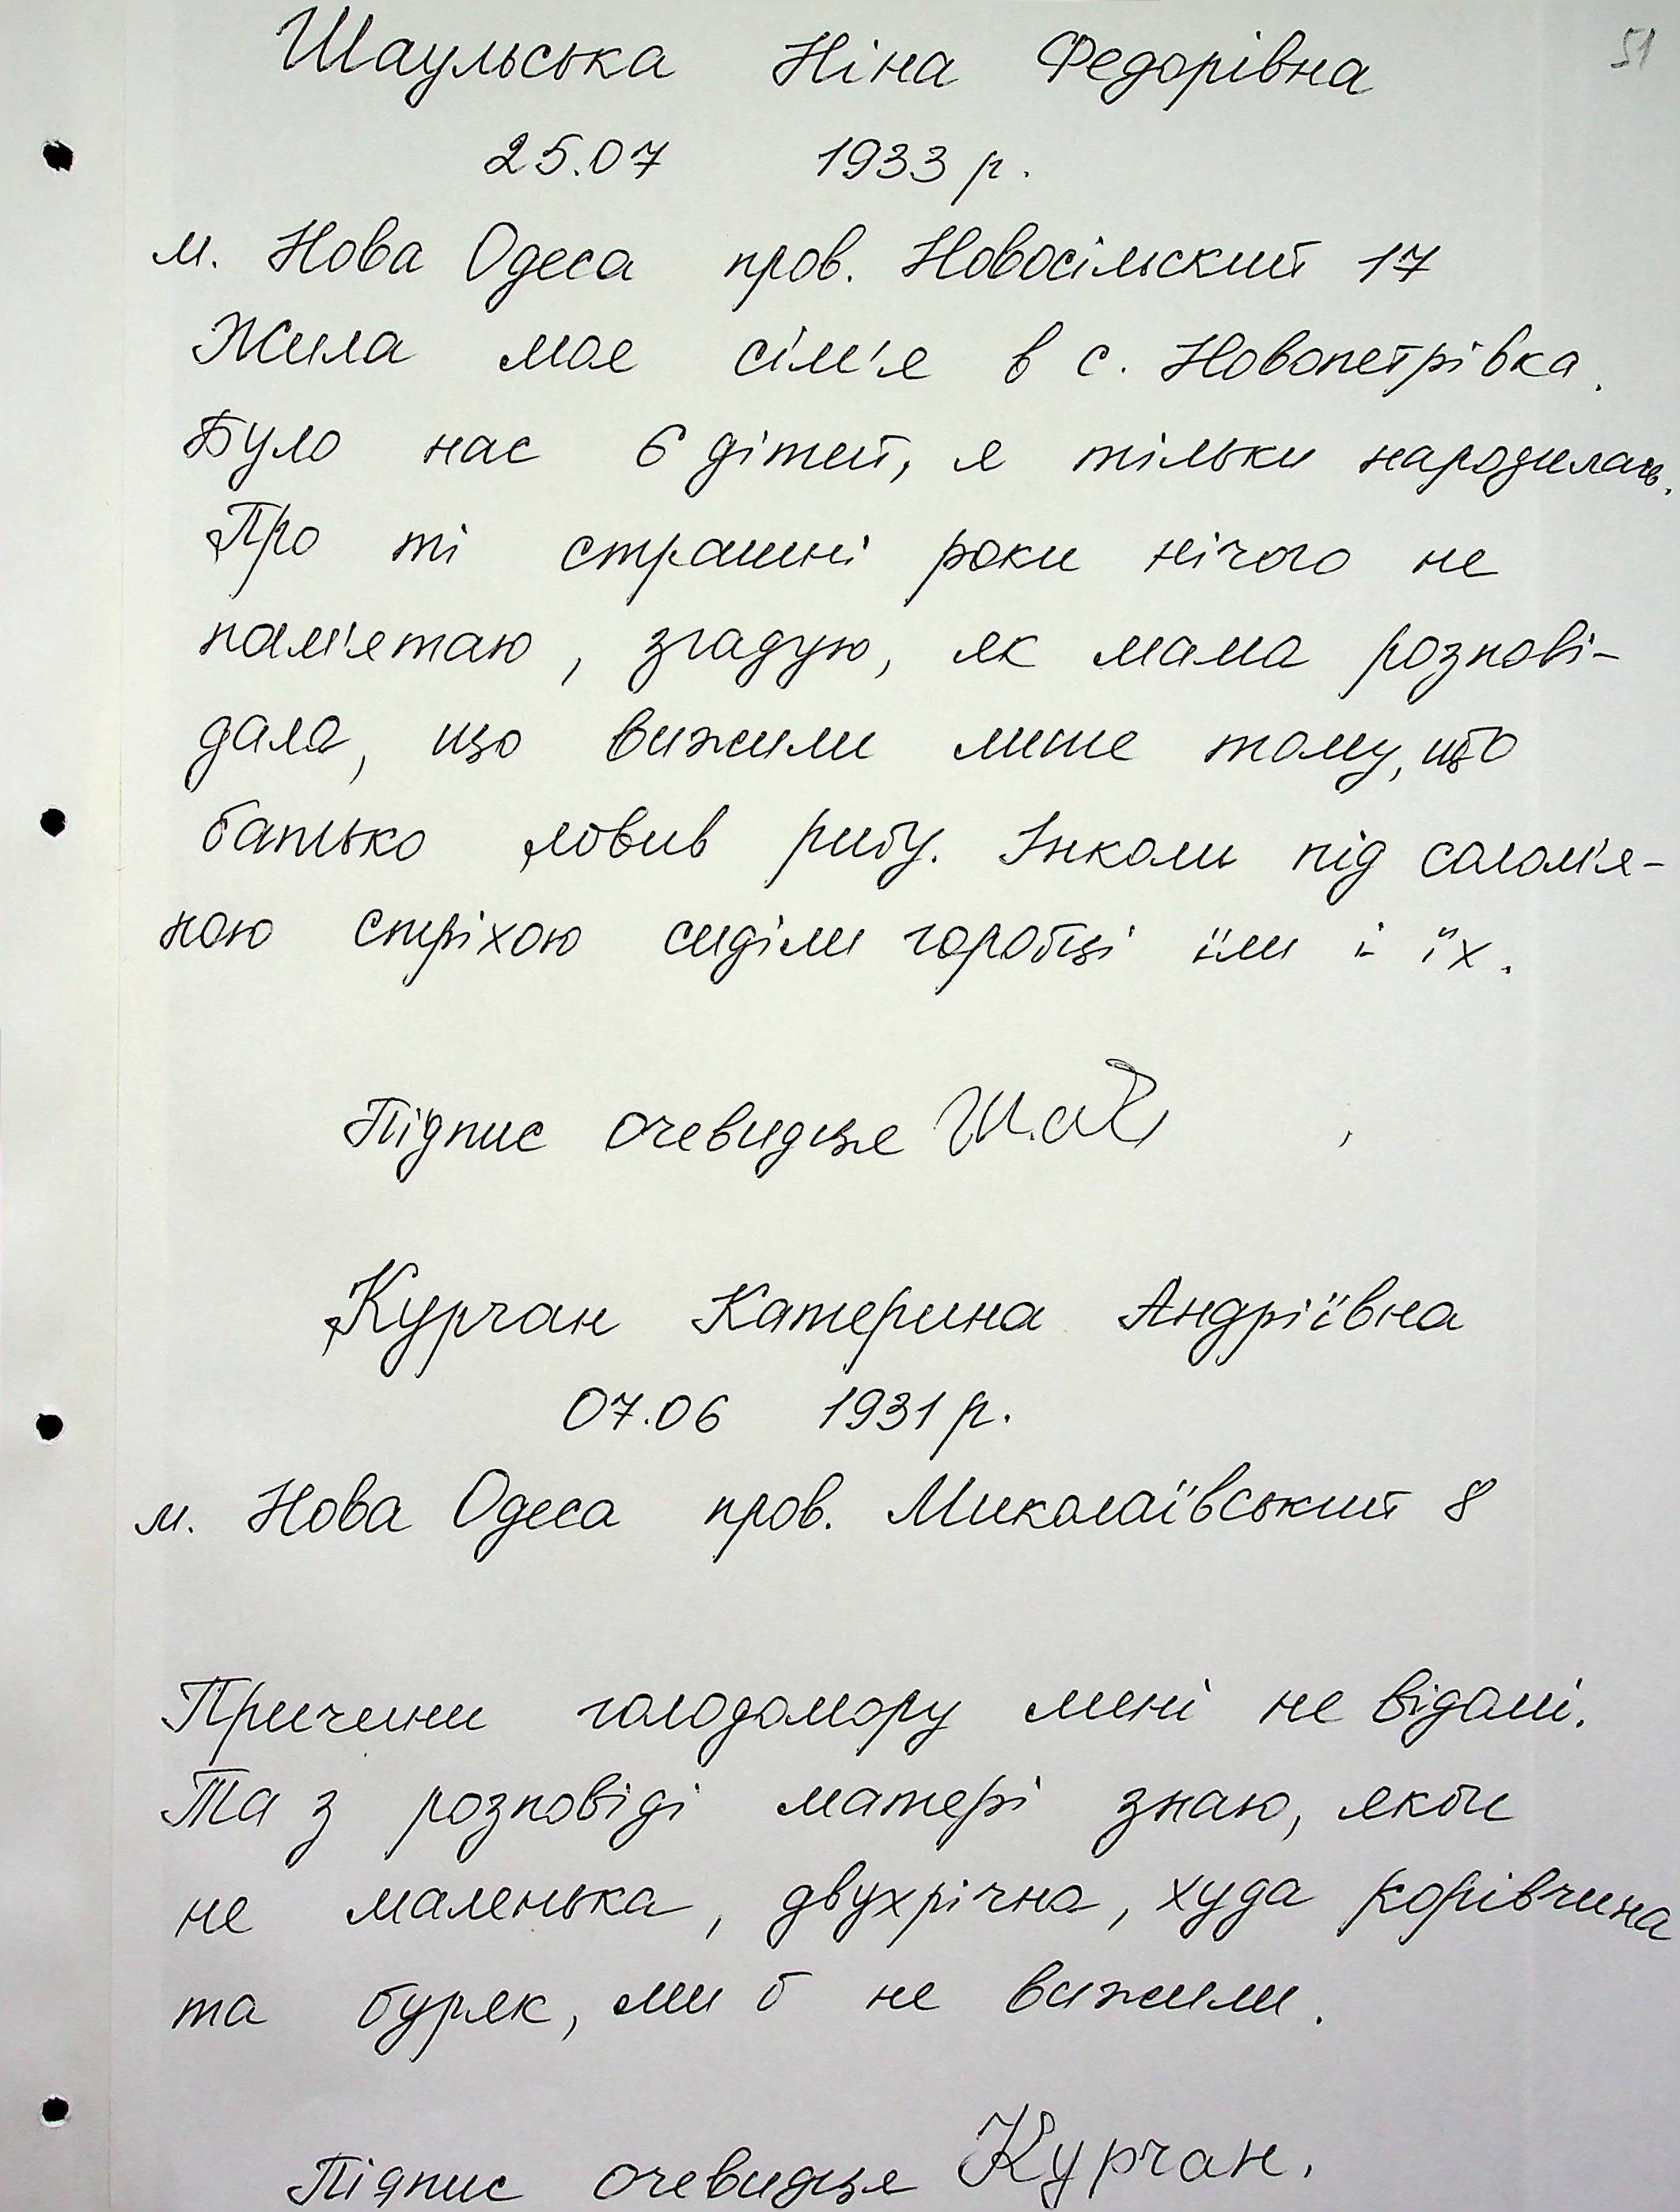 51
Шаульська Ніна Федорівна
25.07 1933 р.
м. Нова Одеса пров. Новосільский 17
Жила моя сім'я в с. Новопетрівка.
Було нас 6 дітей, я тільки народилась.
Про ті страшні роки нічого не
пам'ятаю, згадую, як мама розпові-
дала, що вижили лише тому, що
батько ловив рибу. Інколи під солом'я-
ною стріхою сиділи горобці їли і їх.
Підпис очевидця
Курчан Катерина Андріївна
07.06 1931 р.
м. Нова Одеса пров. Миколаївський 8
Причини голодомору мені не відомі.
Та з розповіді матері знаю, якби
не маленька, двухрічна, худа корівчина
та буряк, ми б не вижили.
Підпис очевидця Курчан.